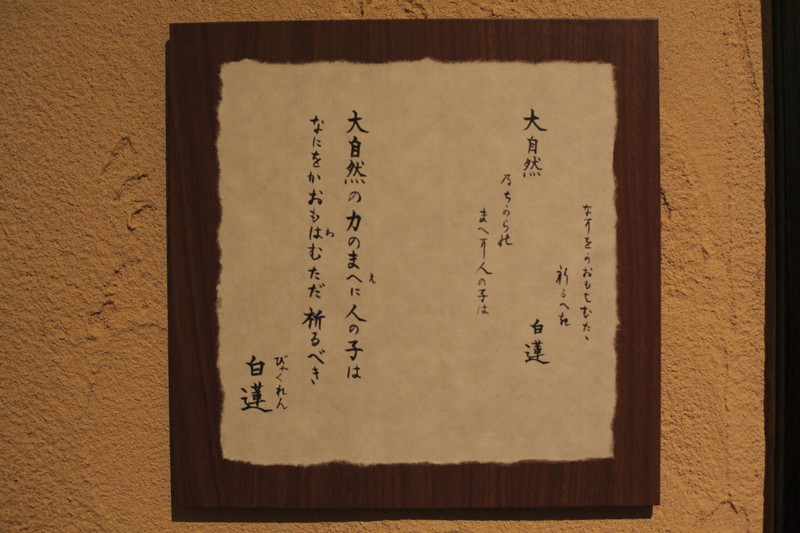 大自然
乃ちからの
まへに人の子は
なにをかおもはむたゝ
祈るへき
白蓮
大自然の力のまへに人の子は
え
なにをかおもはむただ祈るべき
わ
びゃくれん
白蓮